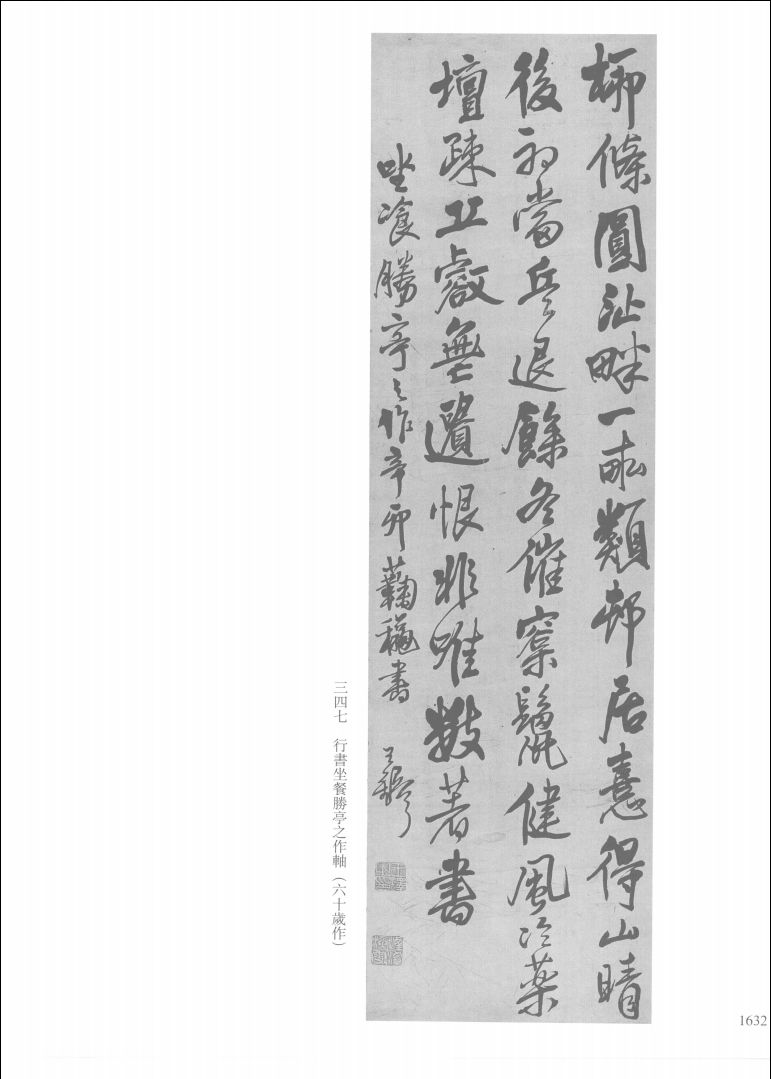 柳條圓沚畔一畝類邨居憙得山晴
後初當兵退餘冬催窠健風冷藥
壇疎丘壑無遺恨非唯數著書
坐飡勝亭之作辛卯蘜穐書 王鐸
三四七 行書坐餐勝亭之作軸（六十歲作）
1632